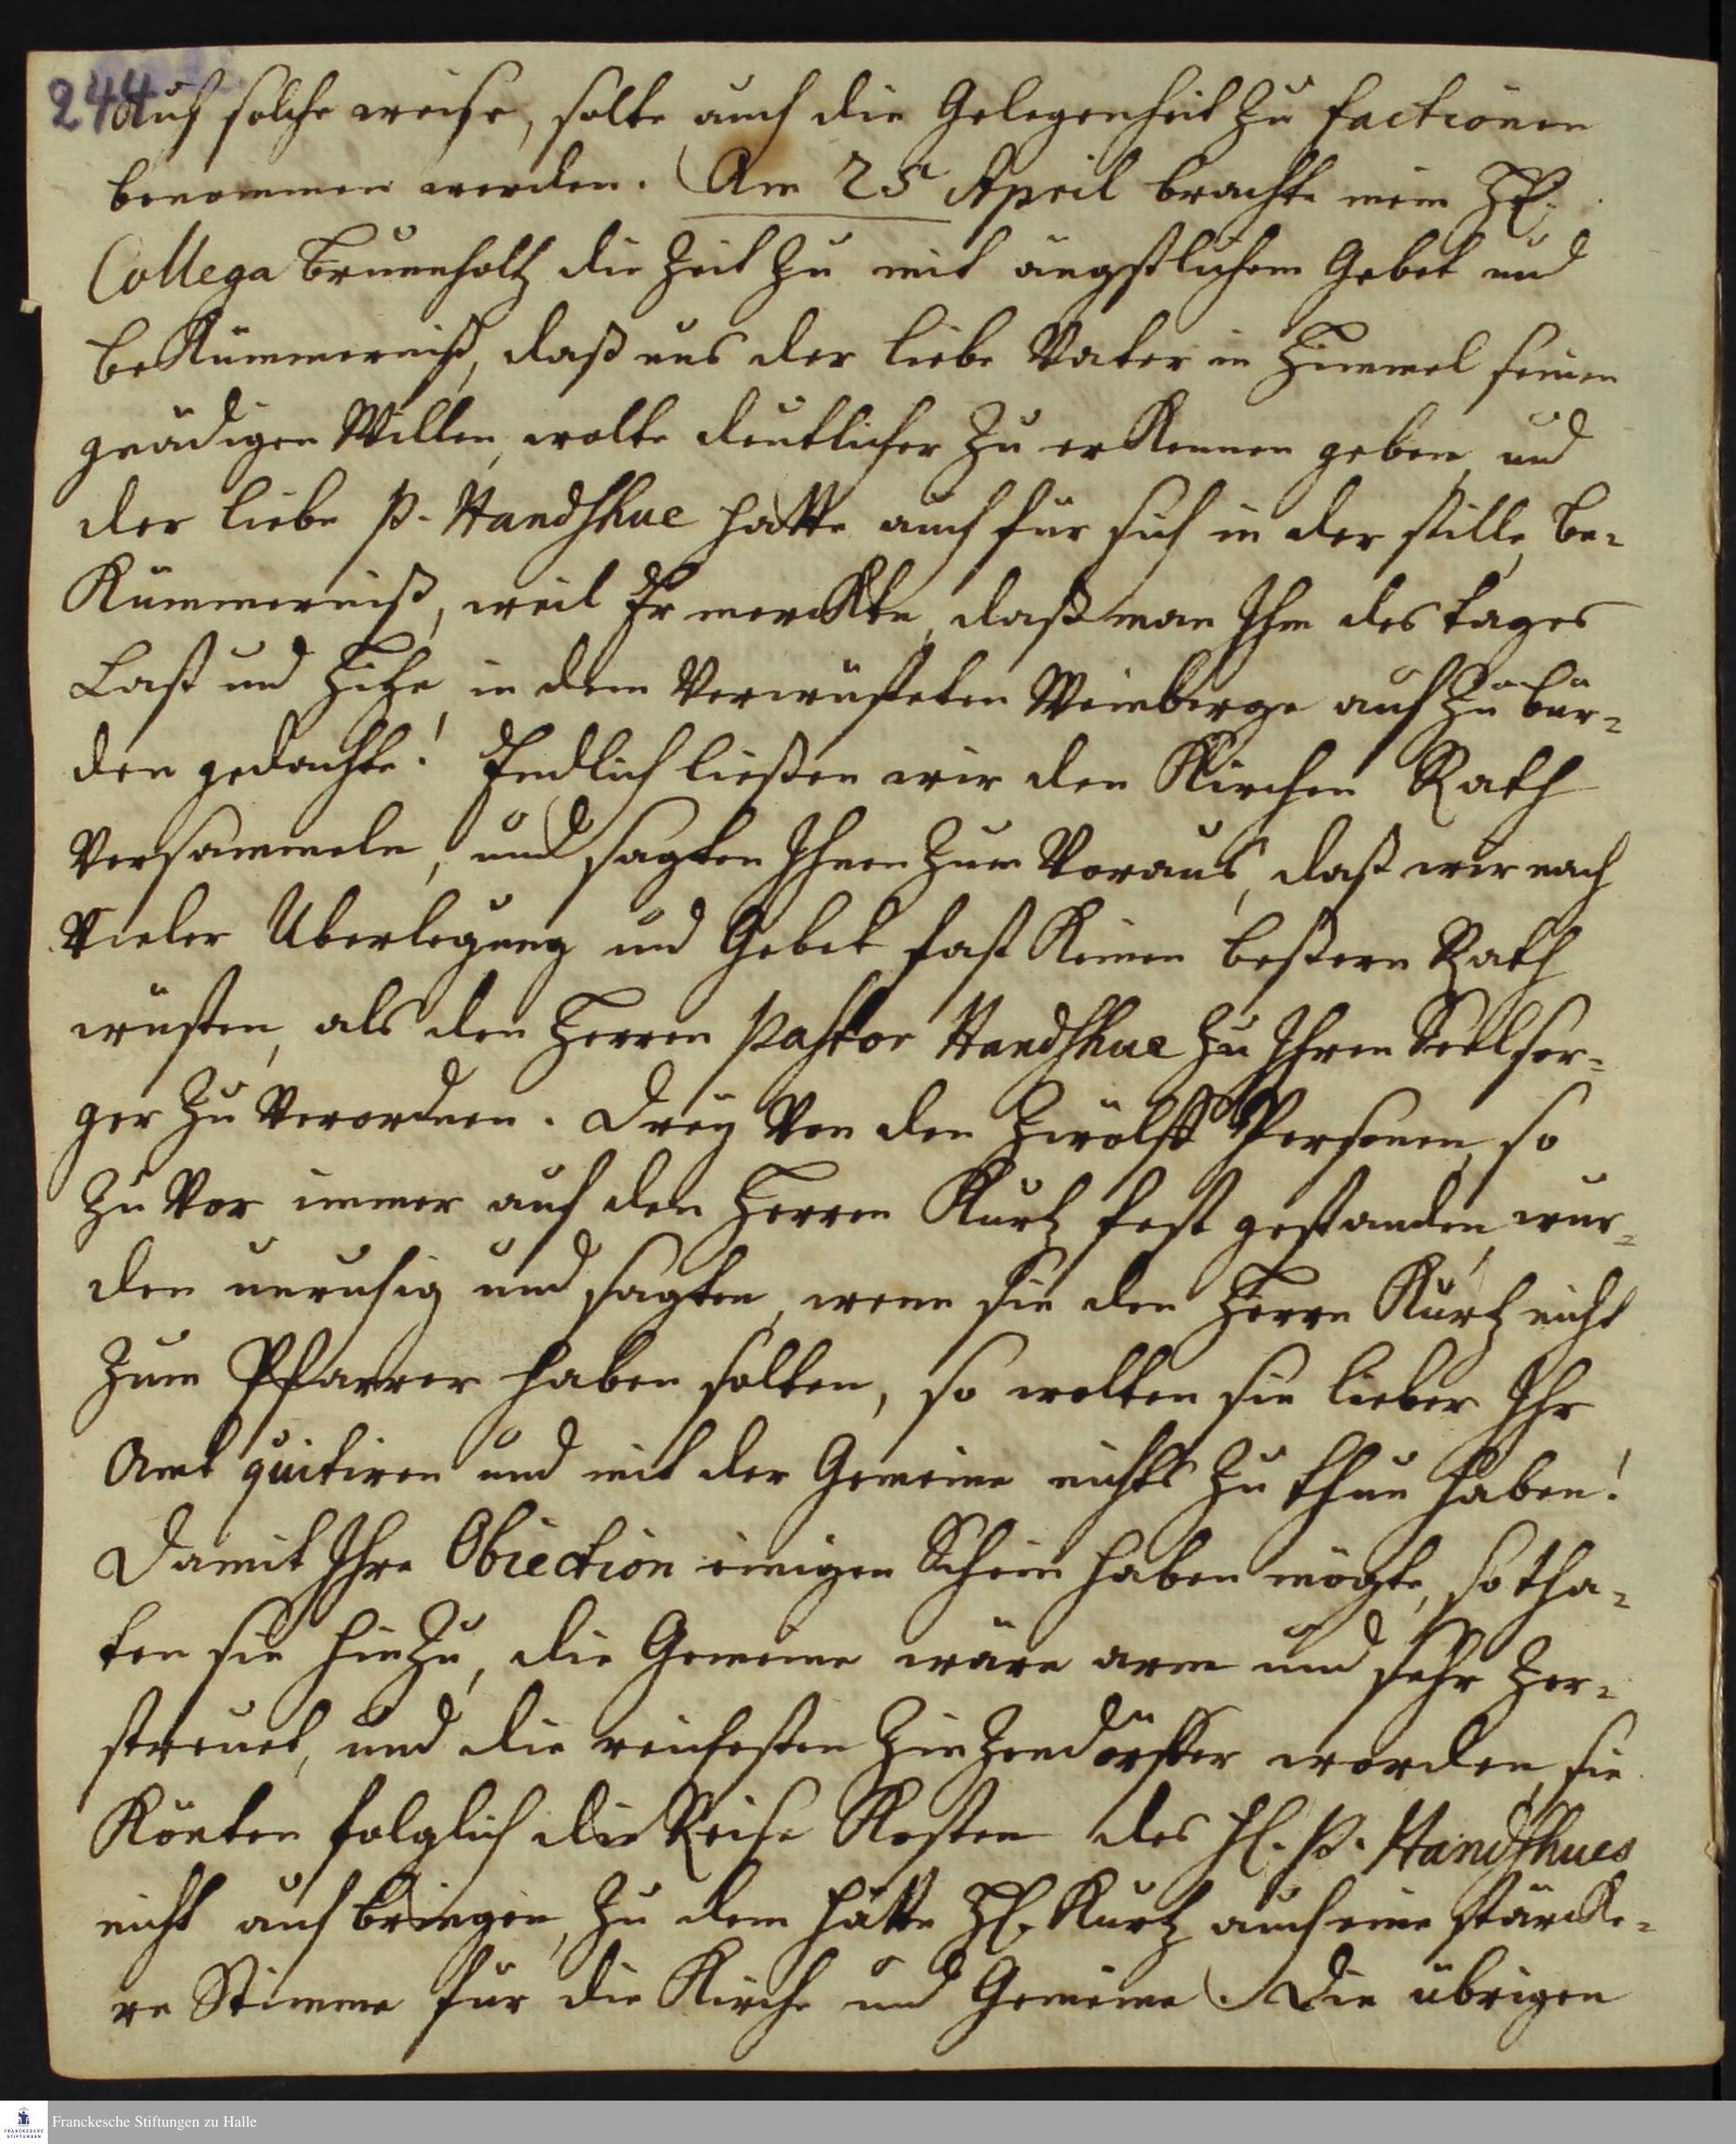 244
Auf solche weise, solte auch die Gelegenheit zu factionen
benommen werden. Am 25 April brachte mein H.
Collega Brunnholtz die Zeit zu mit ängstlichem Gebet und
beKümmerniß, daß uns der liebe Vater in Himmel seinen
gnädigen Willen wolte deutlicher zu erKennen geben, und
der liebe P. Handshue hatte auch für sich in der stille be-
Kümmerniß, weil Er merckte, daß man Ihm des tages
Last und Hitze, in dem Verwüsteten Weinberge auf zu bür-
den gedachte! Endlich ließen wir den Kirchen Rath
Versammeln, und sagten Ihnen zum Voraus, daß wir nach
Vieler Uberlegung und Gebet fast Keinen beßern Rath
wüsten, als den Herren Pastor Handshue zu Ihren Seelsor-
ger zu Verordnen. Drey Von den Zwölff Personen, so
zu Vor immer auf den Herren Kurtz fest gestanden, wur-
den unruhig und sagten, wenn sie den Herrn Kurtz nicht
zum Pfarrer haben solten, so wolten sie lieber Ihr
Amt quitiren und mit der Gemeine nichts zu thun haben!
Damit Ihre Obiection einigen Schein haben mögte, so tha-
ten sie hinzu, die Gemeine wäre arm und sehr zer-
streuet, und die reichesten Zinzendörffer worden, sie
Könten folglich die Reise Kosten des H. P. Handshues
nicht auf bringen, zu dem hätte H. Kurtz auch eine stärcke-
re Stimme für die Kirche und Gemeine. Die übrigen
Franckesche Stiftungen zu Halle
FRANCKESCHE
STIFTUNGEN